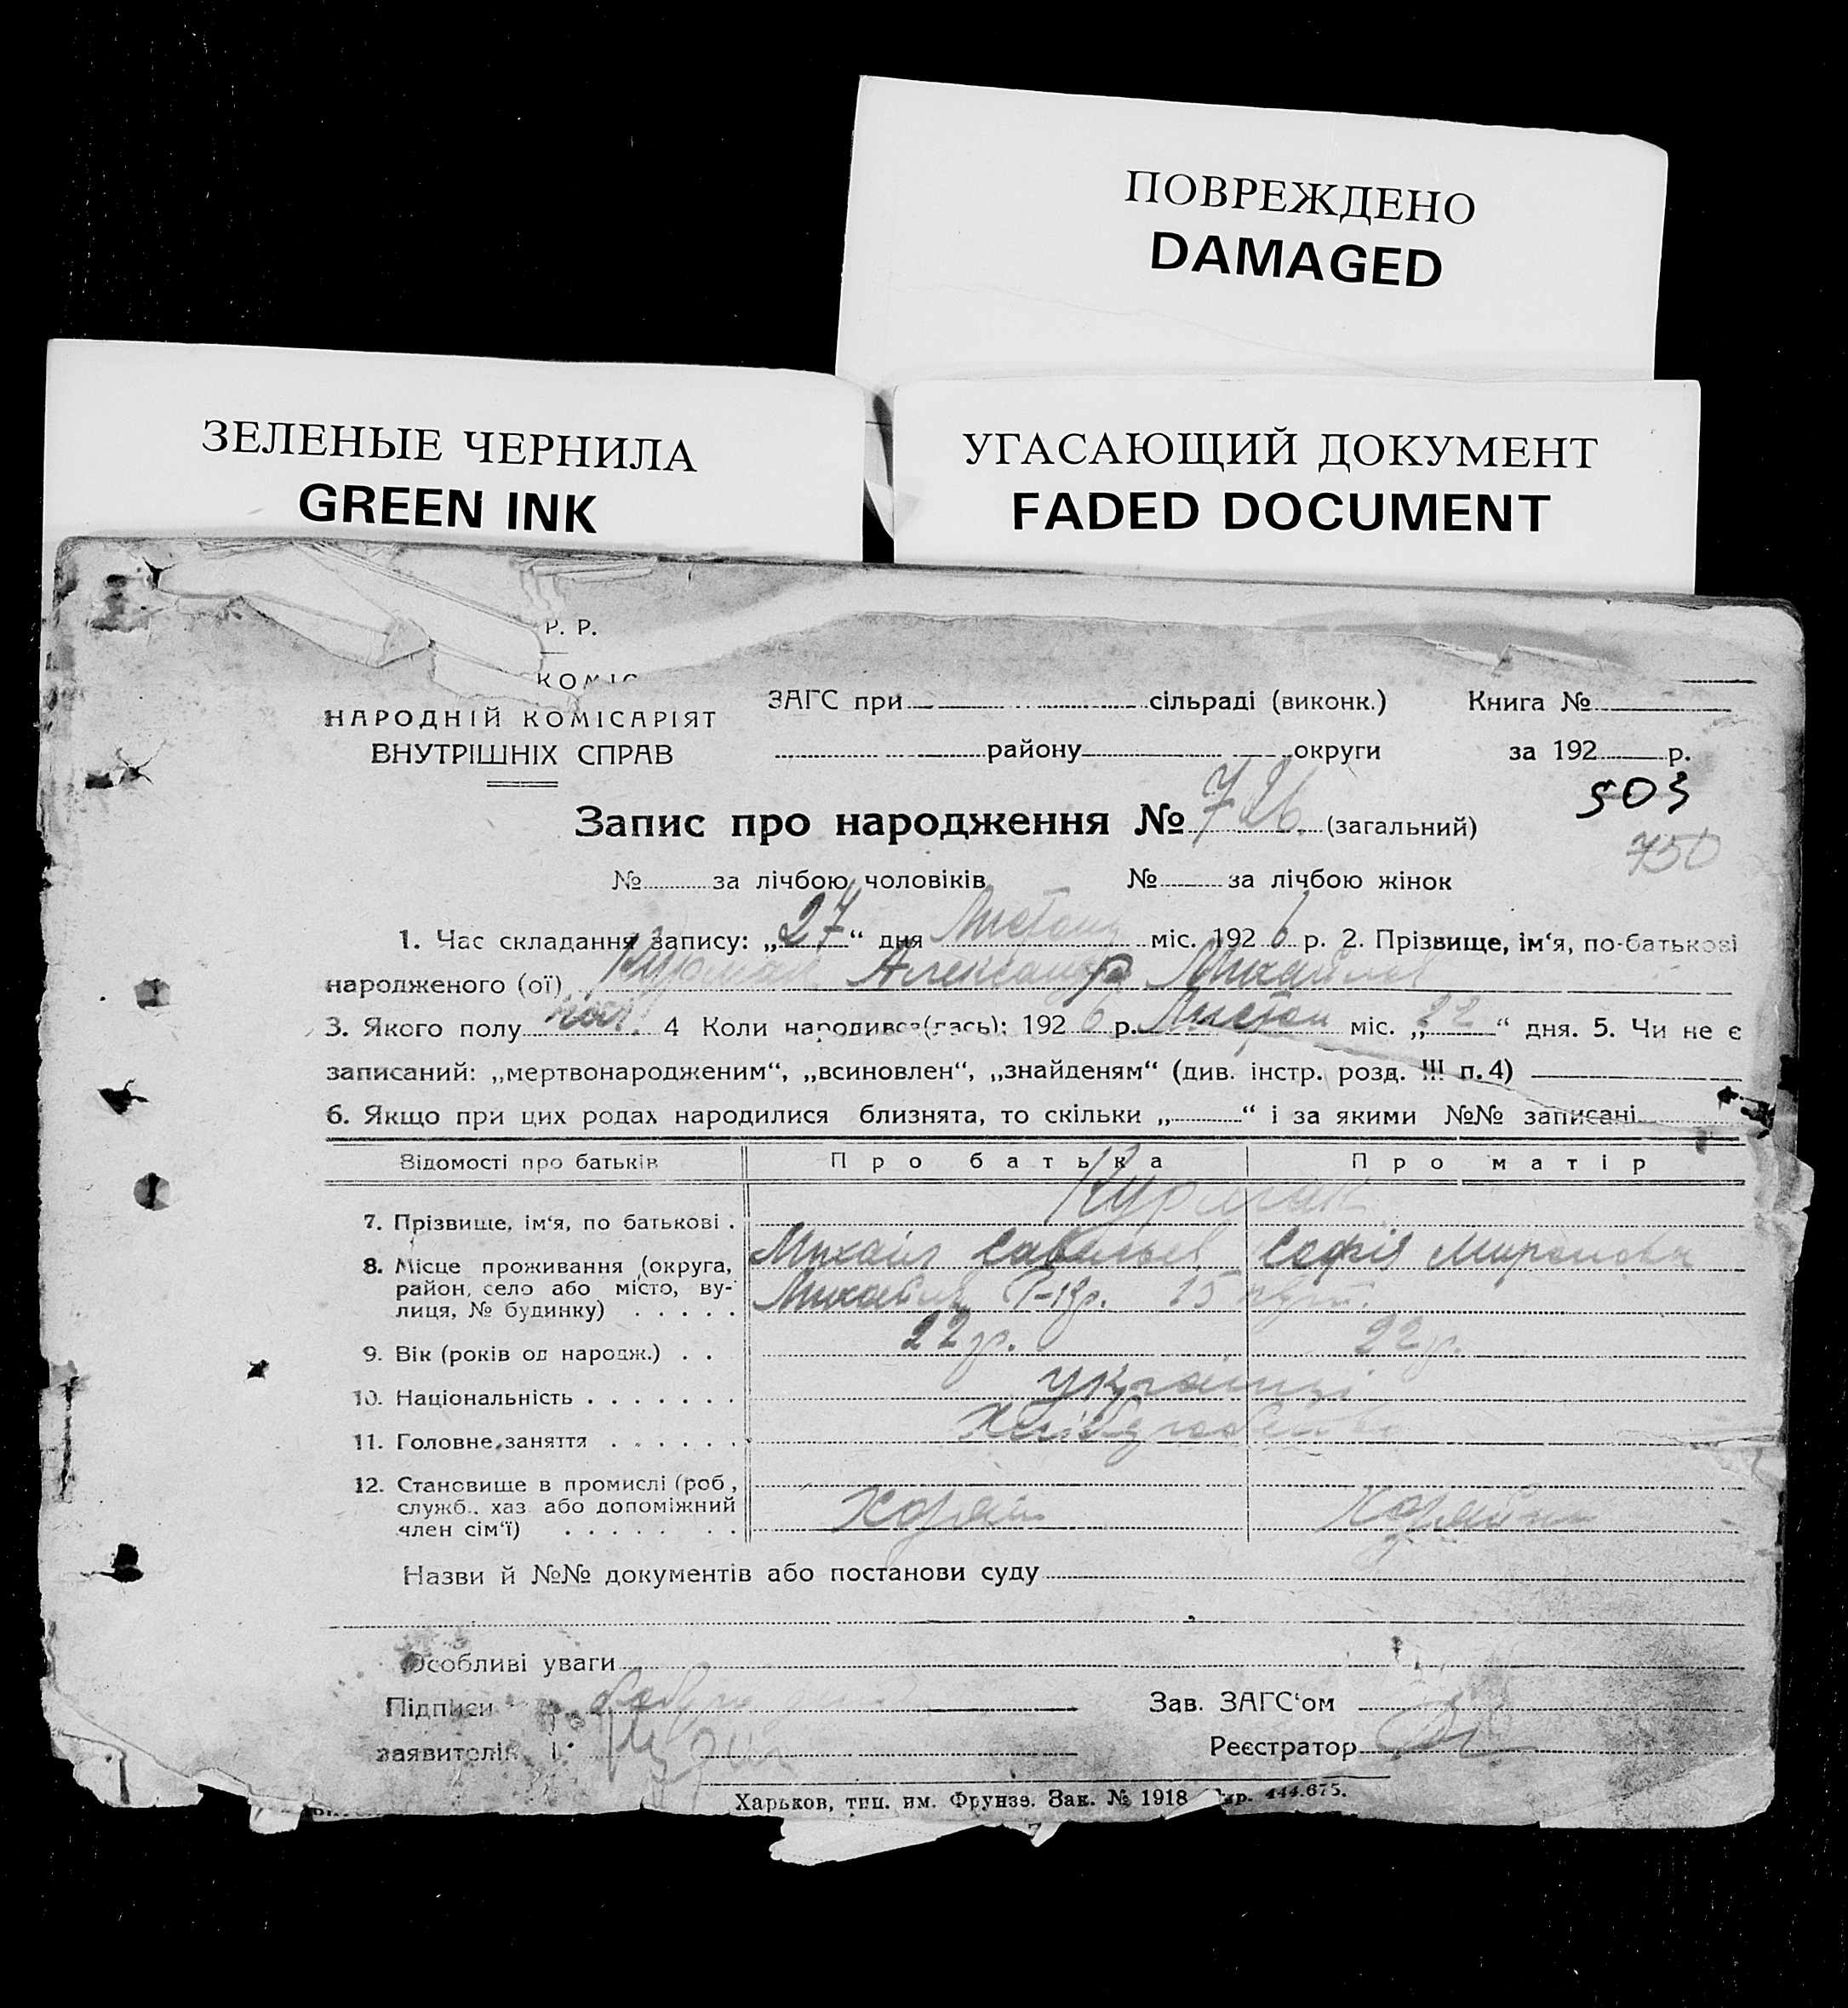 ПОВРЕЖДЕНО
DAMAGED
ЗЕЛЕНЫЕ ЧЕРНИЛА
GREEN INK
УГАСАЮЩИЙ ДОКУМЕНТ
FADED DOCUMENT
Р. Р.
НАРОДНІЙ КОМІСАРІЯТ
ВНУТРІШНІХ СПРАВ
ЗАГС при сільраді (виконк.) Книга №
району округи за 192 р.
503
Запис про народження № 726 (загальний)
750
№ за лічбою чоловіків № за лічбою жінок
1. Час складання запису: „27“ дня Листопад міс. 1926 р. 2. Прізвище, ім‘я, по-батькові
народженого (ої) Курмак Александр Михайлов
3. Якого полу чол. 4 Коли народився(лась): 1926 р. Листоп міс. „22“ дня. 5. Чи не є
записаний: „мертвонародженим“, „всиновлен“, „знайденям“ (див. інстр. розд. III п. 4)
6. Якщо при цих родах народилися близнята, то скільки „ “ і за якими №№ записані
Відомості про батьків Про батька Про матір
7. Прізвище, ім‘я, по батькові . Курмак
Михайл Савельев Софія Миронова
8. Місце проживання (округа,
район, село або місто, вулиця, № будинку) . . . . . 15
9. Вік (років од народж.) . . 22 р. 22 р.
10. Національність . . . . . . . українці
11. Головне заняття . . . . . . Хліборобство
12. Становище в промислі (роб.,
служб., хаз. або допоміжний
член сім‘ї) . . . . . . . Хозяїн Хозяйка
Назви й №№ документів або постанови суду
Особливі уваги
Підписи Зав. ЗАГС‘ом
заявителів Реєстратор
Харьков, тип. им. Фрунзе. Зак. № 1918 444.675.